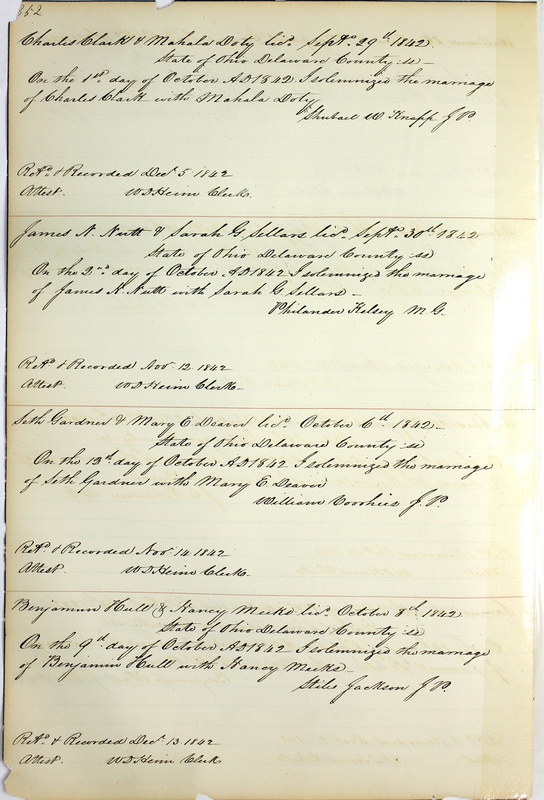 352
Charles Clark & Mahala Doty lics. Septr. 29th 1842
State of Ohio Delaware County ss
On the 1st day of October AD 1842 I solemnized the marriage
of Charles Clark with Mahala Doty
Shubael W. Knapp J P.
Retd. & Recorded Decr. 5 1842
Attest. W D Heim Clerk
James N. Nutt & Sarah G Sellars lics. Septr. 30th 1842
State of Ohio Delaware County ss
On the 2nd day of October AD 1842 I solemnized the marriage
of James N. Nutt with Sarah G Sellars –
Philander Kelsey M. G.
Retd. & Recorded Nov. 12 1842
Attest. W D Heim Clerk
Seth Gardner & Mary E. Deaver lics. October 6th 1842 –
State of Ohio Delaware County ss
On the 13th day of October AD 1842 I solemnized the marriage
of Seth Gardner with Mary E Deaver
William Voorhies J. P.
Retd. & Recorded Nov. 14 1842
Attest. W D Heim Clerk
Benjamin Hull & Nancy Meeks lics. October 8th 1842
State of Ohio Delaware County ss
On the 9th day of October AD 1842 I solemnized the marriage
of Benjamin Hull with Nancy Meeks –
Jackson J P.
Retd. & Recorded Decr. 13 1842
Attest. W D Heim Clerk